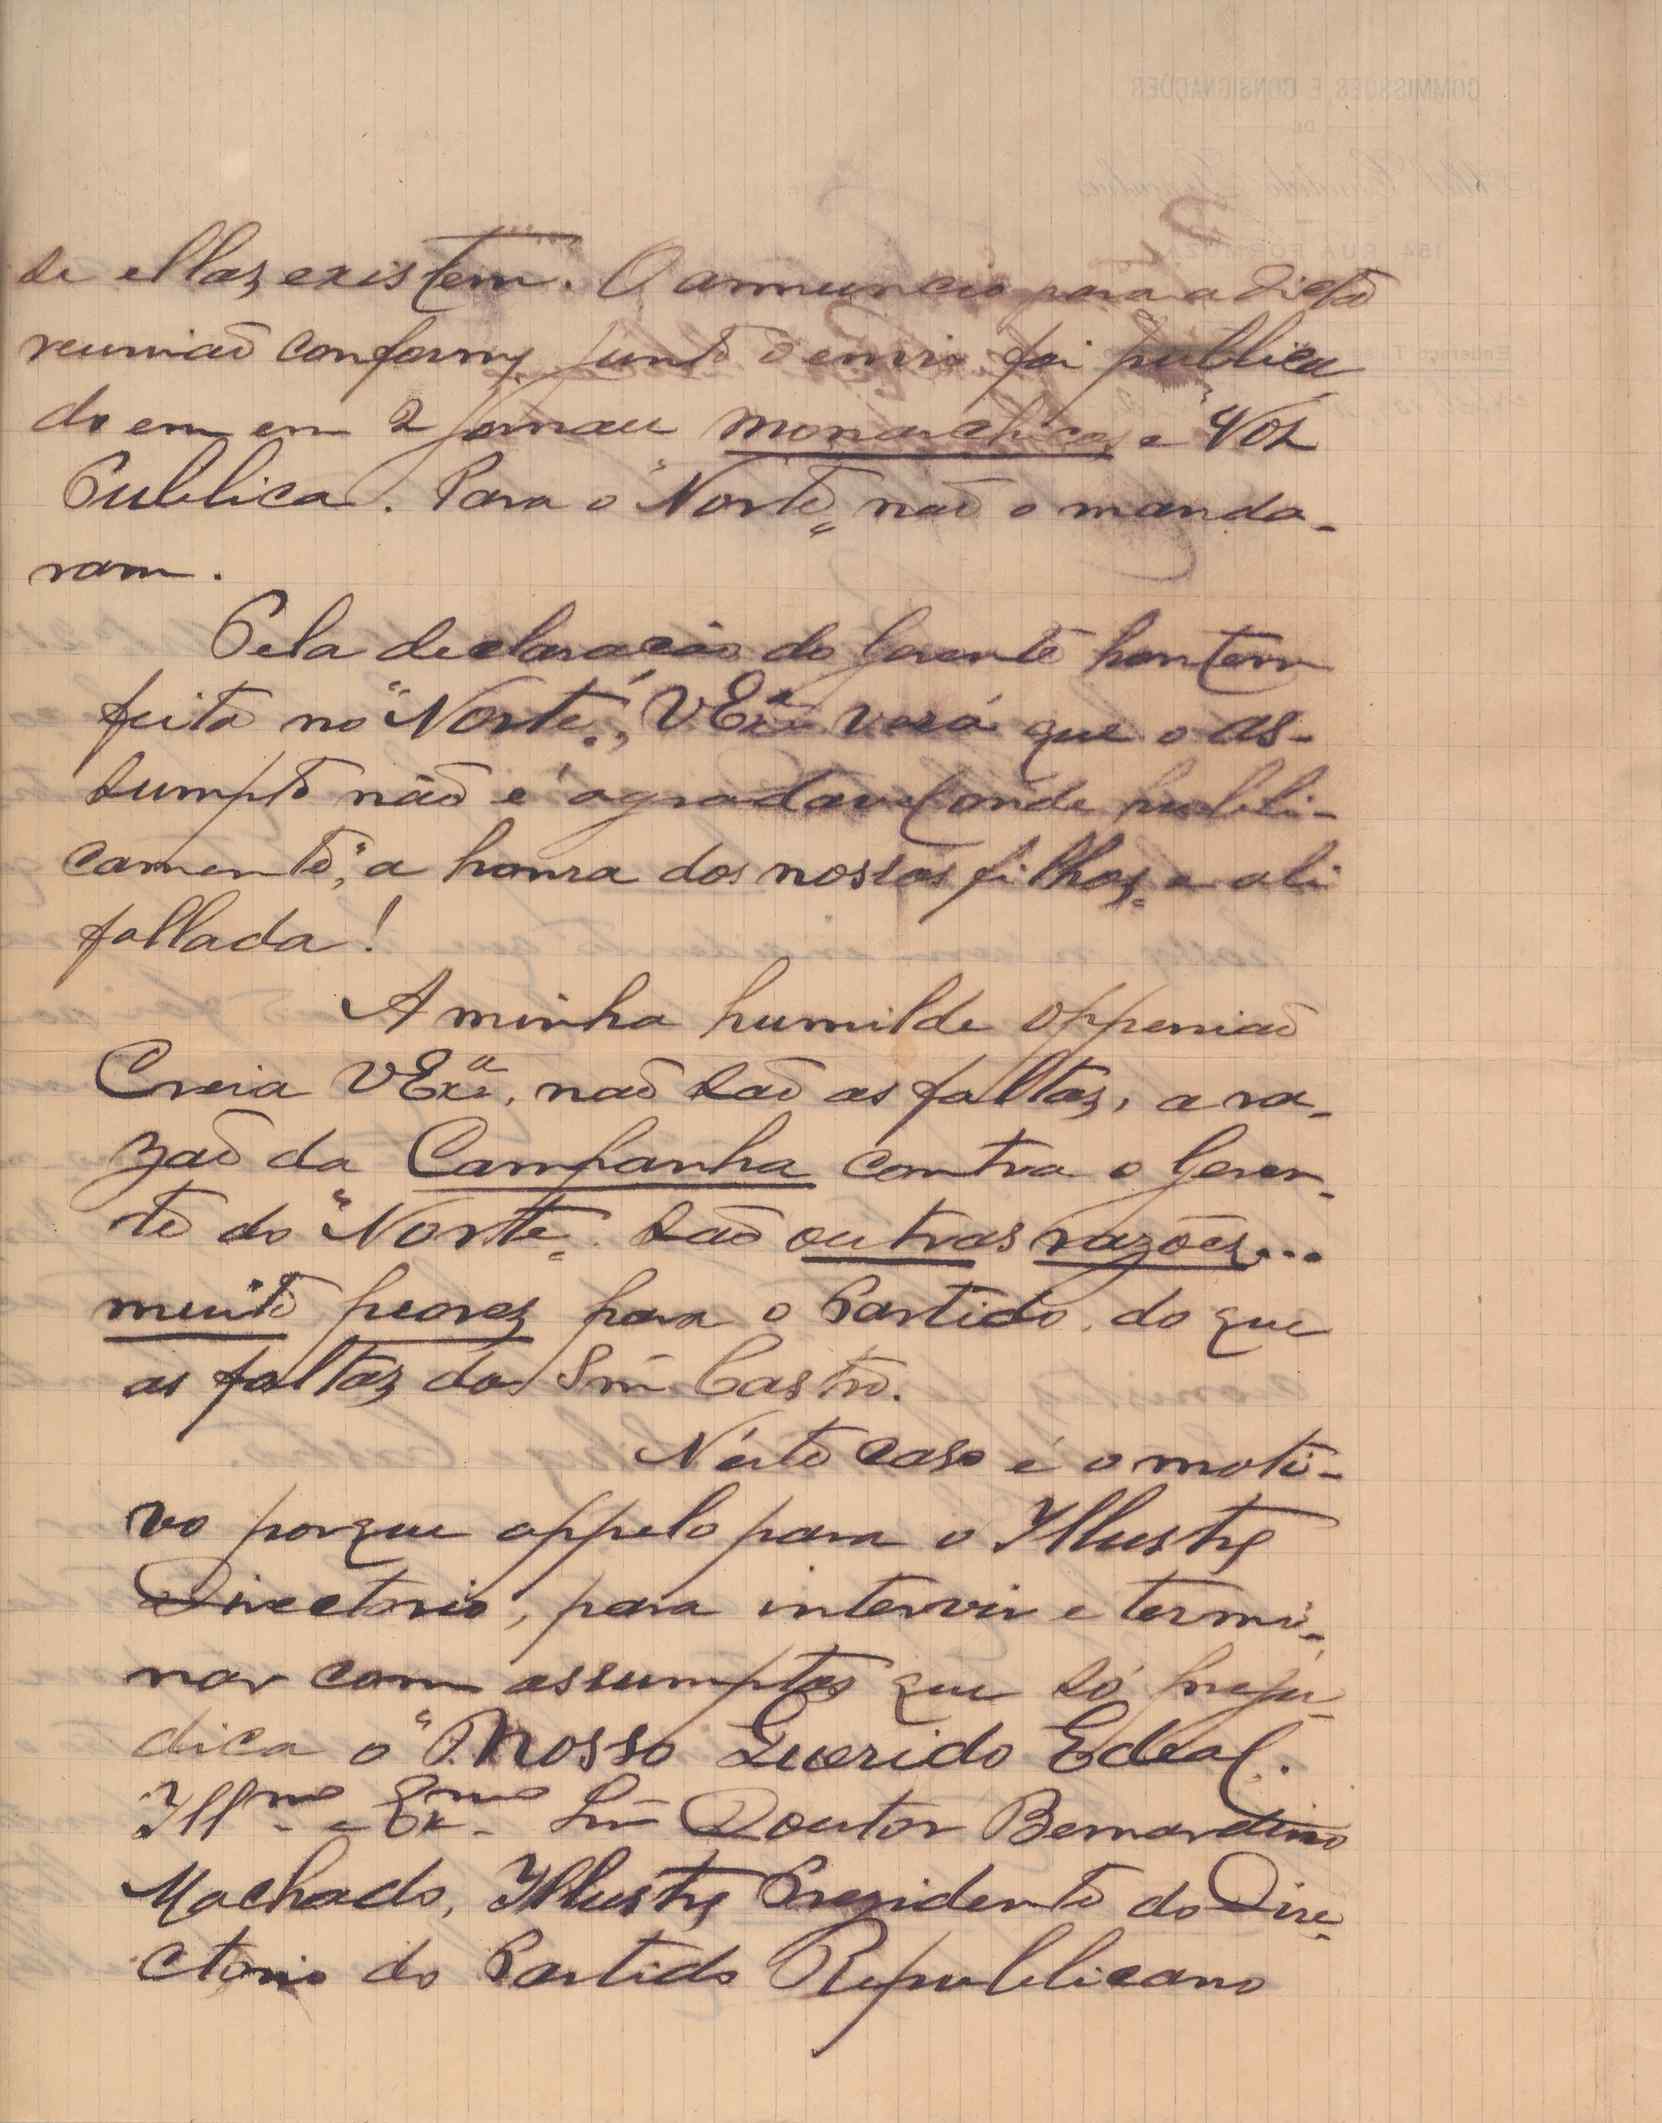 de ellas existem. O annuncio para a dicta
reunião conforme junto o envio foi publica
do em em 2 jornaes monarchicos e "Voz
Publica. Para o "Norte" não o manda-
ram.
Pela declaração do Gerente hontem
feita no "Norte", V Exª verá que o as-
sumpto não é agradavel onde publi-
camente, "a honra dos nossos filhos" e ali
fallada!
A minha humilde oppenião
Creia V Exª, não são as faltas, a ra-
zão da Campanha contra o Geren-
te do "Norte". São outras razões...
muito peores para o Partido, do que
as faltas do Snr Castro.
Néste caso é o moti-
vo porque appelo para o Illustre
Directorio, para intervir e termi-
nar com assumptos que só preju-
dica o "Nosso Querido Edeal.
Illmo e Exmo Snr Doutor Bernardino
Machado, Illustre Prezidente do Dire-
ctorio do Partido Republicano
COMMISSÕES E CONSIGNAÇÕES
DE